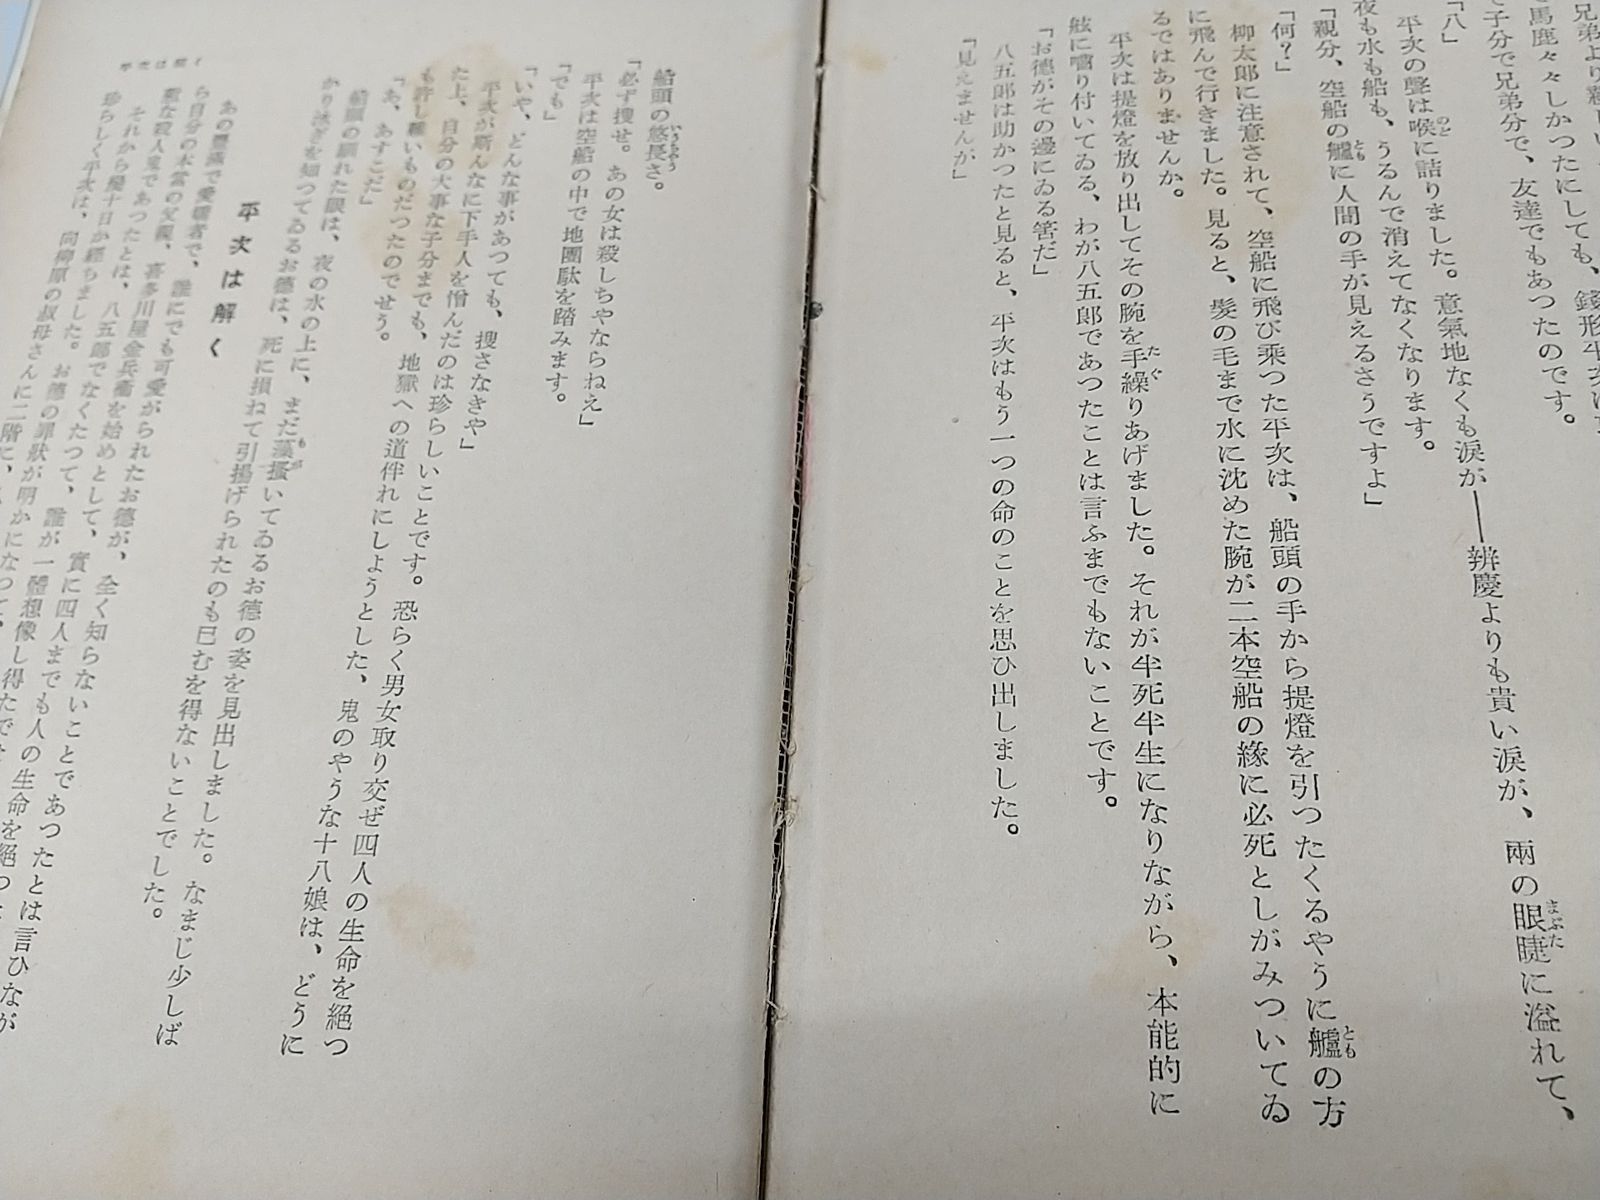 馬鹿々々しかつたにしても、
で子分で兄弟分で、友達でもあつたのです。
「八」
平次の聲は喉に詰りました。意氣地なくも涙が――辨慶よりも貴い涙が、兩の眼睫に溢れて、
夜も水も船も、うるんで消えてなくなります。
「親分、空船の艫に人間の手が見えるさうですよ」
「何？」
柳太郎に注意されて、空船に飛び乘つた平次は、船頭の手から提燈を引つたくるやうに艫の方
に飛んで行きました。見ると、髮の毛まで水に沈めた腕が二本空船の緣に必死としがみついてゐ
るではありませんか。
平次は提燈を放り出してその腕を手繰りあげました。それが半死半生になりながら、本能的に
舷に嚙り付いてゐる、わが八五郎であつたことは言ふまでもないことです。
「お德がその邊にゐる筈だ」
八五郎は助かつたと見ると、平次はもう一つの命のことを思ひ出しました。
「見えませんが」
船頭の悠長さ。
「必ず搜せ。あの女は殺しちやならねえ」
平次は空船の中で地團駄を踏みます。
「でも」
「いや、どんな事があつても、搜さなきや」
平次が斯んなに下手人を憎んだのは珍らしいことです。恐らく男女取り交ぜ四人の生命を絕つ
た上、自分の大事な子分までも、地獄への道伴れにしようとした、鬼のやうな十八娘は、どうに
も許し難いものだつたのでせう。
「あ、あすこだ」
船頭の馴れた眼は、夜の水の上に、まだ藻搔いてゐるお德の姿を見出しました。なまじ少しば
かり泳ぎを知つてゐるお德は、死に損ねて引揚げられたのも已むを得ないことでした。
平次は解く
あの豐滿で愛嬌者で、誰にでも可愛がられたお德が、全く知らないことであつたとは言ひなが
ら自分の本當の父親、喜多川屋金兵衞を始めとして、實に四人までも人の生命を絕つた
な殺人鬼であつたとは、八五郎でなくたつて、誰が一體想像し得たでせ
それから幾十日か經ちました。お德の罪狀が明かになつて、
珍らしく平次は、向柳原の叔母さんに二階に、
平次は解く